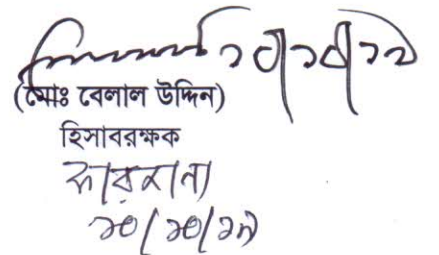 ১০/১০/১৯
(মোঃ বেলাল উদ্দিন)
হিসাবরক্ষক
কারখানা
১০/১০/১৯